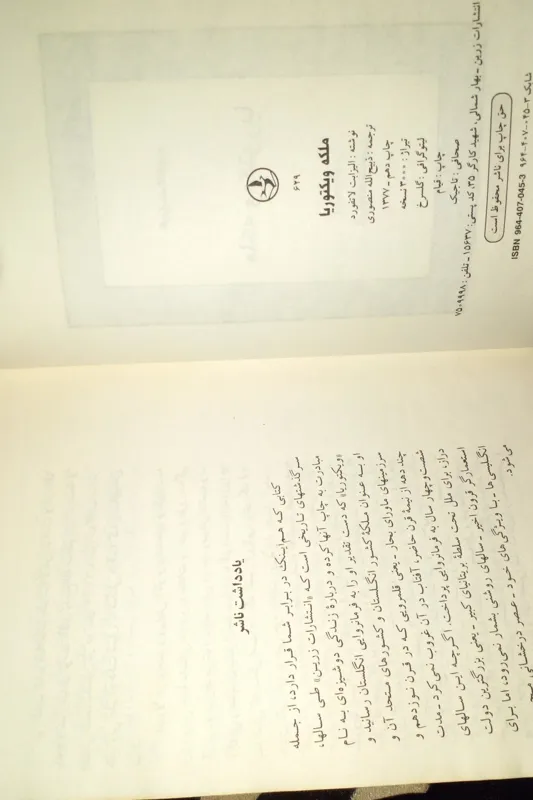 ۶۲۹
ملکه ویکتوریا
نوشته : الیزابت لانفورد
ترجمه : ذبیح‌الله منصوری
۱۳۷۷ - چاپ دهم
تیراژ : ۳۰۰۰ نسخه
لیتوگرافی : گلسرخ
چاپ : قیام
صحافی : تاجیک
انتشارات زرین - بهار شمالی، شهید کارگر ۳۵، کد پستی : ۱۵۶۳۷ - تلفن : ۷۵۰۹۹۹۸
حق چاپ برای ناشر محفوظ است
ISBN 964-407-045-3
شابک ۳-۰۴۵-۴۰۷-۹۶۴
یادداشت ناشر
کتابی که هم‌اینک در برابر شما قرار دارد، از جمله
سرگذشتهای تاریخی است که «انتشارات زرین» طی سالها،
مبادرت به چاپ آنها کرده و دربارهٔ زندگی دوشیزه‌ای به نام
«ویکتوریا» که دست تقدیر او را به فرمانروایی انگلستان رسانید و
او به عنوان ملکهٔ کشور انگلستان و کشورهای متحد آن و
سرزمینهای ماورای بحار - یعنی قلمرویی که در قرن نوزدهم و
چند دهه از نیمهٔ قرن حاضر، آفتاب در آن غروب نمی‌کرد - مدت
شصت و چهار سال به فرمانروایی پرداخت. اگر چه این سالهای
دراز، برای ملل تحت سلطهٔ بریتانیای کبیر - یعنی بزرگترین دولت
استعمارگر قرون اخیر - سالهای روشنی بشمار نمی‌رود، اما برای
انگلیسی‌ها - با ویژگی های خود - عصر درخشانی
می‌شود.